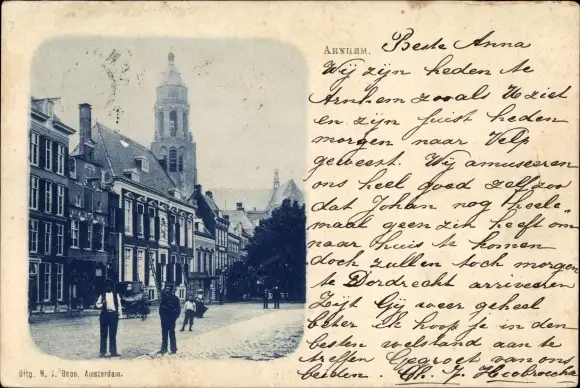 ARNHEM.
Beste Anna
Wij zijn heden te
Arnhem zooals U ziet
en zijn juist heden
morgen naar Velp
geweest. Wij amuseeren
ons heel goed zelfzoo
dat Johan nog heele-
maal geen zin heeft om
naar huis te komen
doch zullen toch morgen
te Dordrecht arriveeren
Zijt Gij weer geheel
beter ik hoop je in den
besten welstand aan te
treffen Gegroet van ons
beiden. Ch. J.
Uitg. N. J. Boon, Amsterdam.